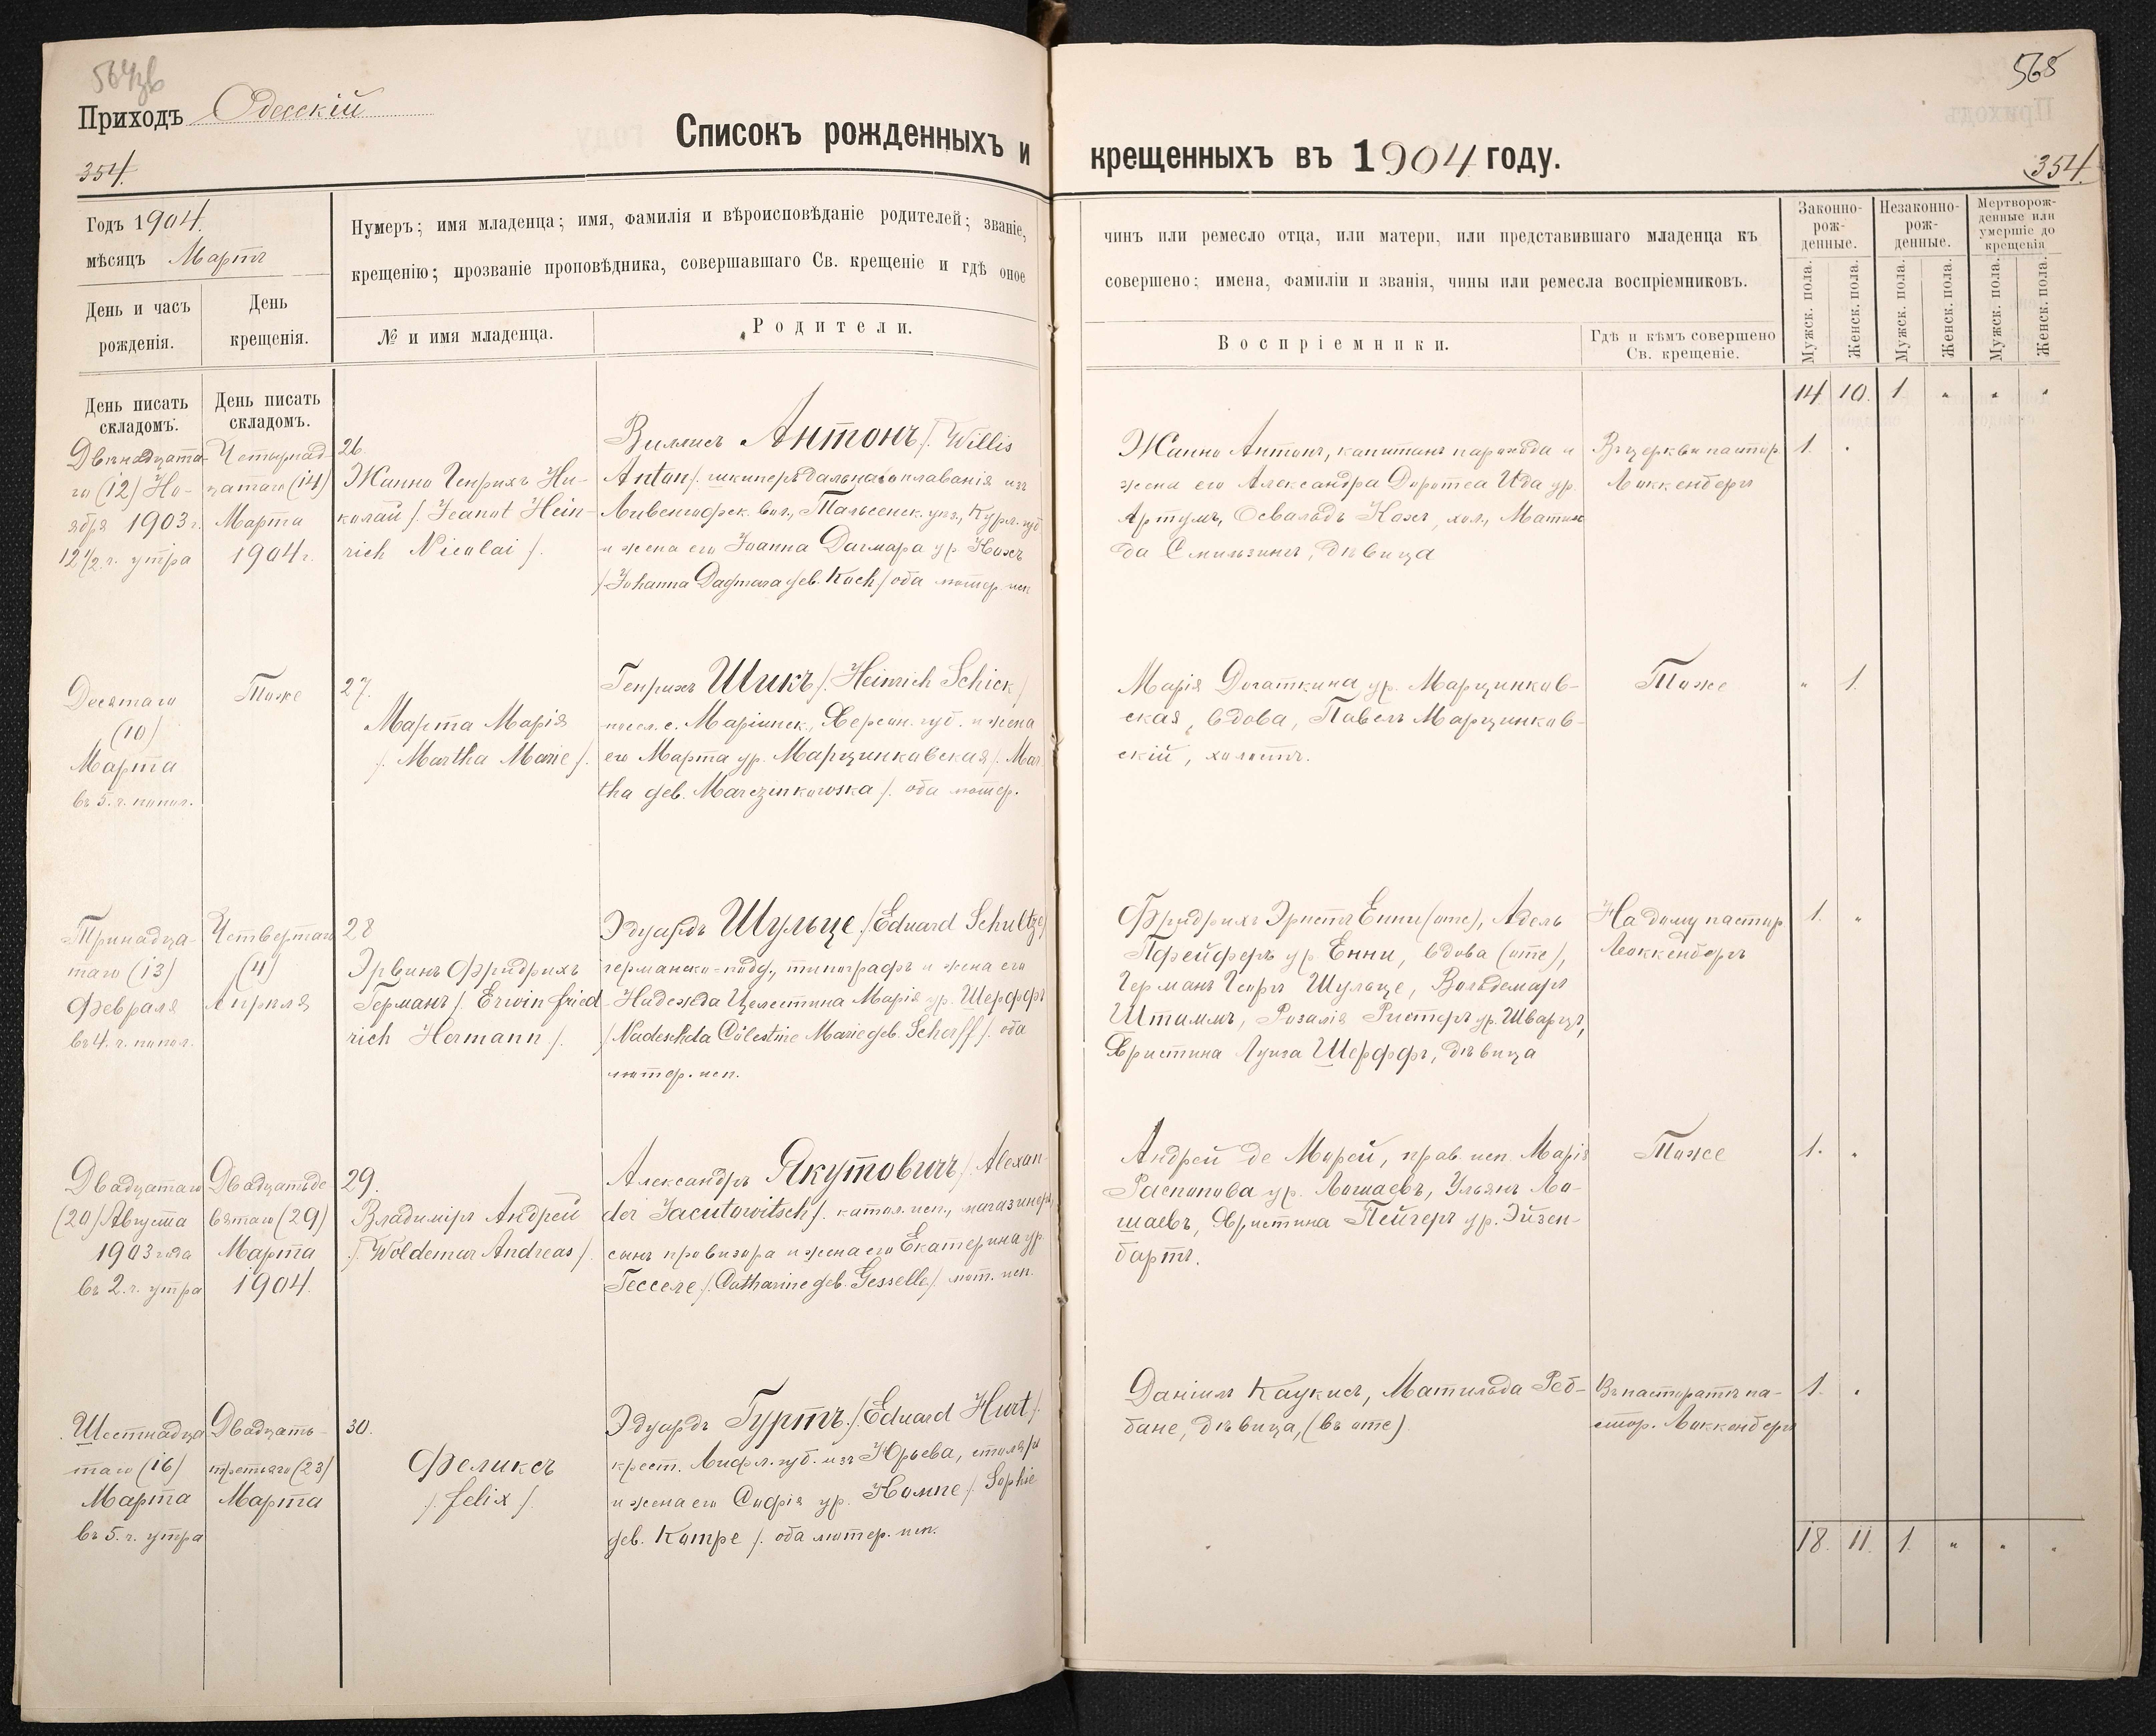 Приходъ Одесскій
354.
Списокъ рожденныхъ и
Годъ 1904.
мѣсяцъ Мартъ
День и часъ
рожденія.
День
крещенія.
Нумеръ; имя младенца; имя, фамилія и вѣроисповѣданіе родителей; званіе,
крещенію; прозваніе проповѣдника, совершавшаго Св. крещеніе и гдѣ оное
№ и имя младенца.
Родители.
День писать
складомъ.
День писать
складомъ.
Двѣнадцата-
го (12) Но-
ября 1903 г.
12 1/2 ч. утра
Четырнад-
цатаго (14)
Марта
1904 г.
26.
Жанно Генрихъ Ни-
колай /. Jeanot Hein-
rich Nicolai /.
Виллисъ Антонъ /. Willis
Anton /. шкиперъ дальнаго плаванія изъ
вол., Тальсенск. уѣз., Курл. губ.
и жена его Іоанна Дагмара ур. Кохъ
/ Johanna Dagmara geb. Koch / оба лютер. исп.
Десятаго
(10)
Марта
въ 5. ч. попол.
Тоже
27.
Марта Марія
/. Martha Marie /.
Генрихъ Шикъ /. Heinrich Schick /
посел. с. Маріинск., Херсон. губ. и жена
его Марта ур. Марцинковская /. Mar-
tha geb. Marczinkowska /. оба лютер.
Тринадца-
таго (13)
Февраля
въ 4. ч. попол.
Четвертаго
(4)
Апрѣля
28
Эрвинъ Фридрихъ
Германъ /. Erwin Fried-
rich Hermann /.
Эдуардъ Шульце /. Eduard Schultze /
германско-подд., типографъ и жена его
Надежда Целестина Марія ур. Шерффъ
/ Nadeschda Cölestine Marie geb. Scherff /. оба
лютер. исп.
Двадцатаго
(20) Августа
1903 года
въ 2. ч. утра
Двадцатьде-
вятаго (29)
Марта
1904.
29.
Владиміръ Андрей
/. Woldemar Andreas /.
Александръ Якутовичъ /. Alexan-
der Jacutowitsch /. катол. исп., магазинеръ,
сынъ провизора и жена его Екатерина ур.
Гесселе /. Catharine geb. Gesselle /. лют. исп.
Шестнадца
таго (16)
Марта
въ 5. ч. утра
Двадцать-
третьяго (23)
Марта
30.
Феликсъ
/. Felix /.
Эдуардъ Гуртъ /. Eduard Hurt /.
крест. Лифл. губ. изъ Юрьева, столяръ
и жена его Софія ур. Кампе /. Sophie
geb. Kampe /. оба лютер. исп.
568
крещенныхъ въ 1904 году.
354.
чинъ или ремесло отца, или матери, или представившаго младенца къ
совершено; имена, фамиліи и званія, чины или ремесла воспріемниковъ.
Воспріемники.
Гдѣ и кѣмъ совершено
Св. крещеніе.
Законно-
рож-
денные.
Незаконно-
рож-
денные.
Мертворож-
денные или
умершіе до
крещенія
Мужск. пола.
Женск. пола.
Мужск. пола.
Женск. пола.
Мужск. пола.
Женск. пола.
14 10. 1. " " "
Жанно Антонъ, капитанъ парохода и
жена его Александра Доротеа Ида ур.
Артумъ, Освальдъ Кохъ, хол., Матиль
да Смильзингъ, дѣвица
Въ церкви пастор.
Локкенбергъ
1. "
Марія Догаткина ур. Марцинков-
ская, вдова, Павелъ Марцинков-
скій, холостъ.
Тоже
" 1.
Фридрихъ Эрнстъ Енни (отс), Адель
Пфейферъ ур. Енни, вдова (отс),
Германъ Георгъ Шульце, Вольдемаръ
Штаммъ, Розалія Рихтеръ ур. Шварцъ,
Христина Луиза Шерффъ, дѣвица
На дому пастор
Локкенбергъ
1. "
Андрей де Морей, прав. исп. Марія
Распопова ур. Лошаевъ, Ульянъ Ло-
шаевъ, Христина Пейгеръ ур. Эйзен-
бартъ.
Тоже
1. "
Даніилъ Каукисъ, Матильда Реб-
бане, дѣвица, (въ отс)
Въ пасторатѣ па-
стор. Локкенбергъ
1. "
18. 11. 1. " " "